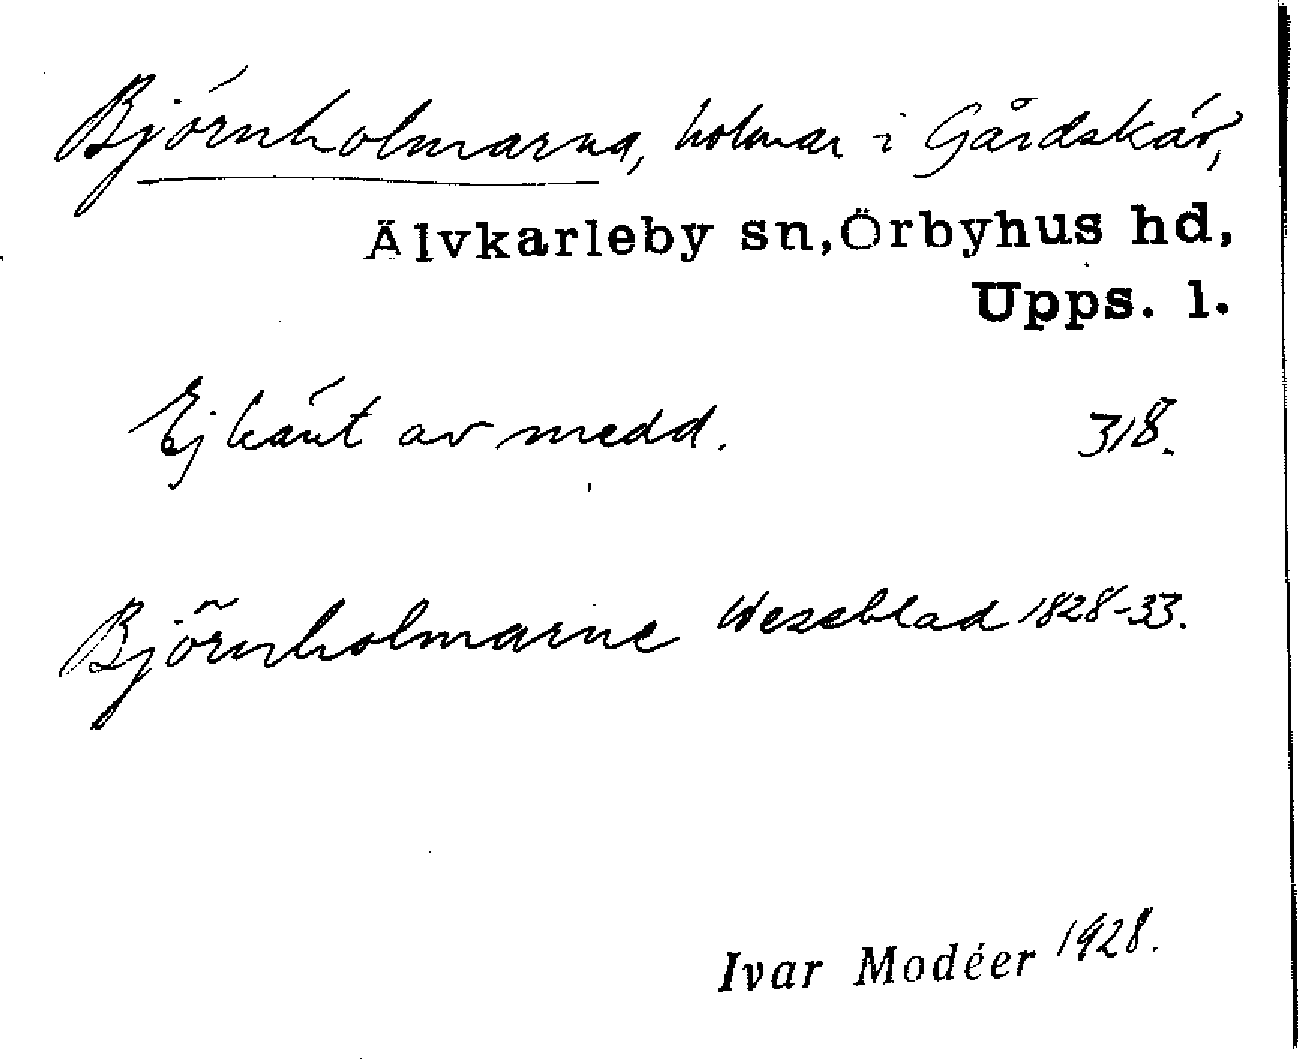 Björnholmarna, holmar i Gårdskär,
Älvkarleby sn, Örbyhus hd,
Upps. l.
Ej känt av medd. 318.
Björnholmarne Weseblad 1828-33.
Ivar Modéer 1928.